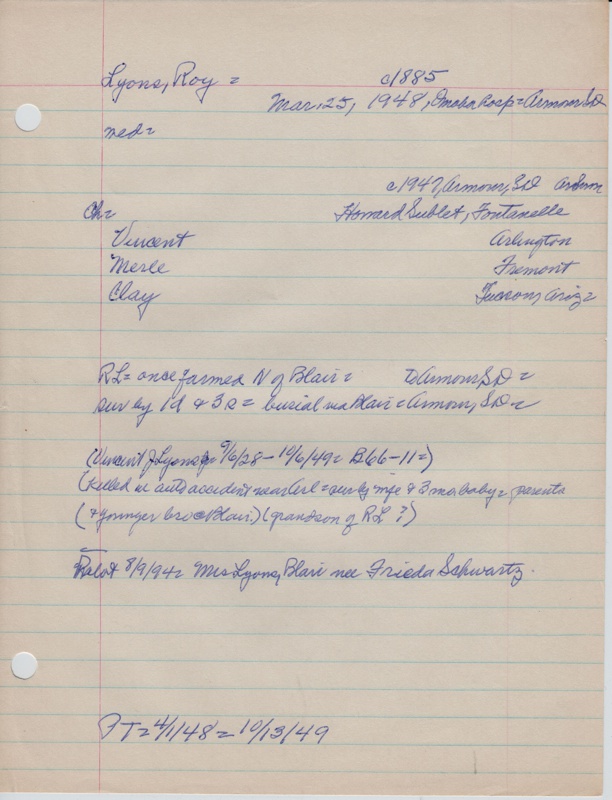 Lyons, Roy = c1885
Mar. 25, 1948, Omaha Hosp = Armour SD
med =
c1947, Armour, SD
Ch = Howard Sublet, Fontanelle
Vincent Arlington
Merle Fremont
Clay Tucson, Ariz =
RL = once farmed N of Blair = to Armour SD =
sur by 1d & 3s = burial via Blair = Armour, SD =
(Vincent J Lyons Jr 9/6/28 - 10/6/49 = B66-11 =)
(killed in auto accident near Arl = sur by wife & 3 mo. baby = parents
(& younger bro Blair.) (grandson of RL ?)
8/9/94 = Mrs Lyons, Blair nee Frieda Schwartz.
PT = 4/1/48 = 10/13/49